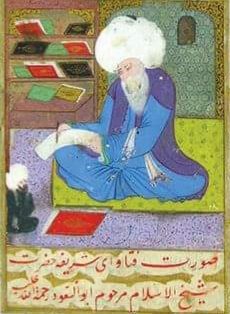 صورت فتاوای شریفهٔ حضرت
شیخ الاسلام مرحوم ابوالسعود رحمة الله علیه